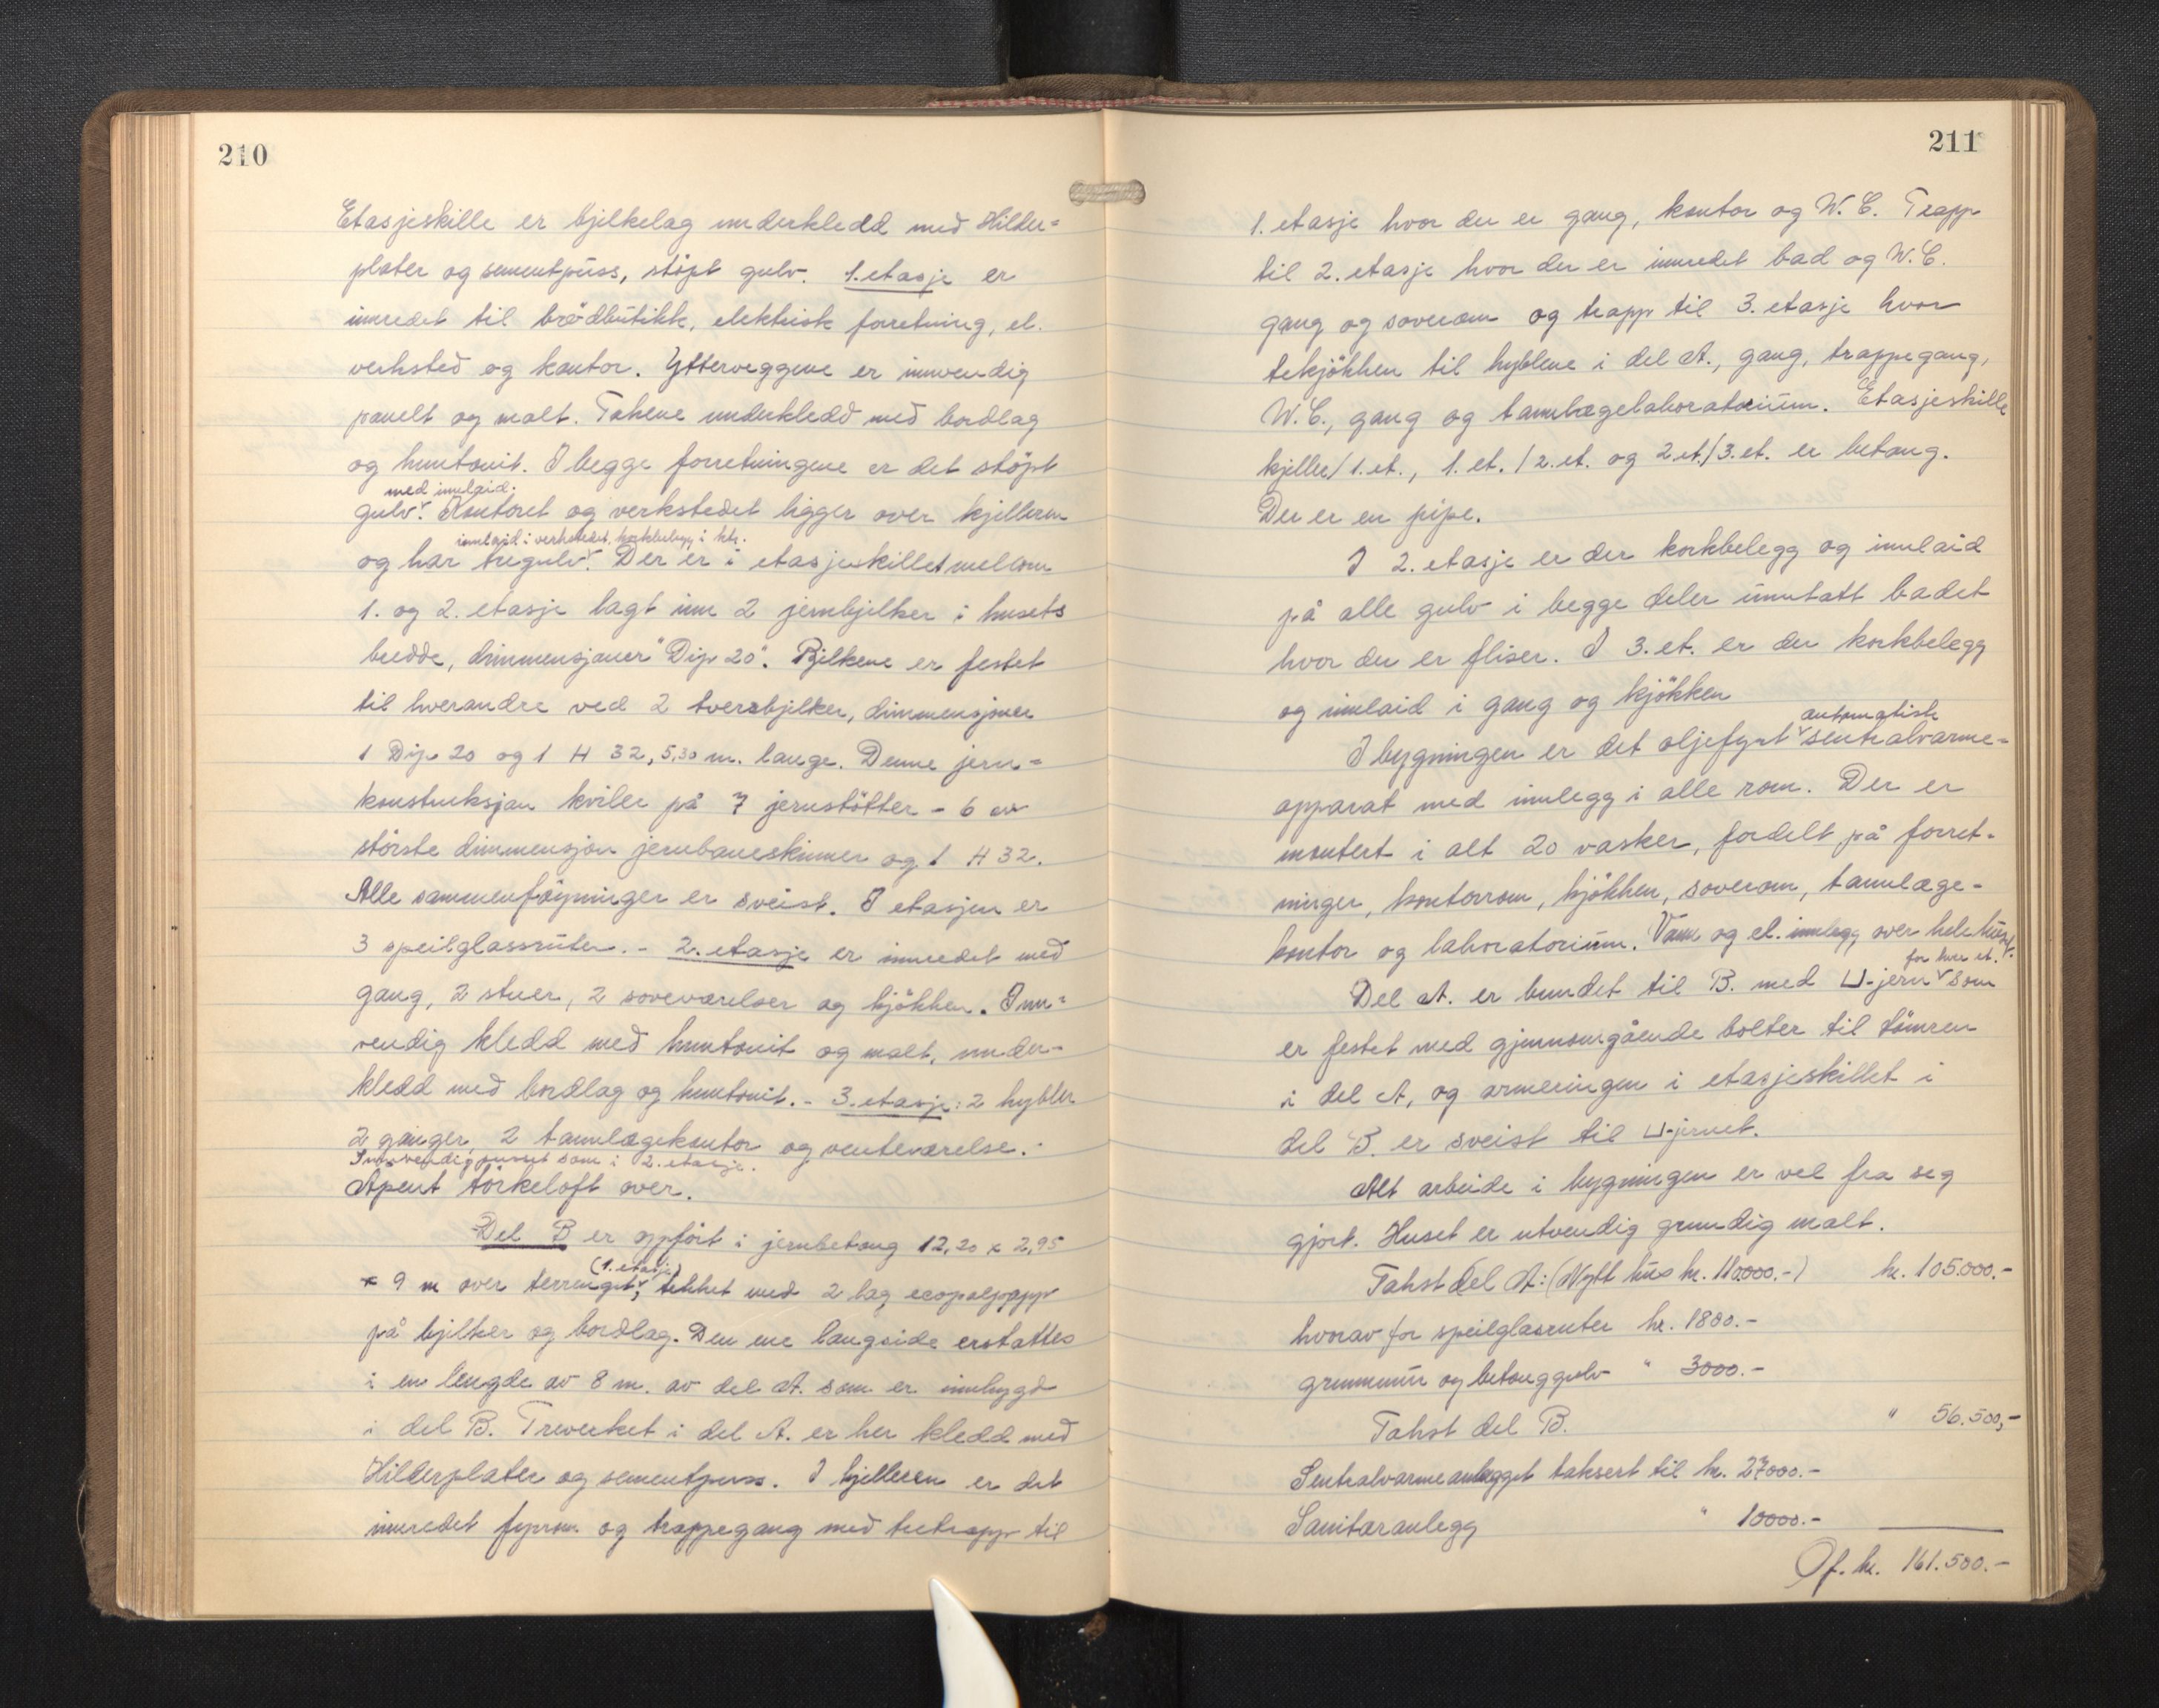 210
Etasjeskille er bjelkelag underkledd med Hilder=
plater og sementpuss, støpt gulv. 1. etasje er
innredet til brødbutikk, elektrisk forretning, el.
verksted og kontor. Ytterveggene er innvendig
panelt og malt. Takene underkledd med bordlag
og huntonit. I begge forretningene er det støpt
med innlaid.
gulv. Kontoret og verkstedet ligger over kjelleren
innlaid i verkstedet, korkbelegg i ktr.
og har tregulv. Der er i etasjeskillet mellom
1. og 2. etasje lagt inn 2 jernbjelker i husets
bredde, dimmensjoner "Dip 20". Bjelkene er festet
til hverandre ved 2 tversbjelker, dimmensjoner
1 Dip 20 og 1 H 32, 5,30 m. lange. Denne jern=
konstruksjon hviler på 7 jernstøtter - 6 av
største dimmensjon jernbaneskinner og 1 H 32.
Alle sammenføyninger er sveist. I etasjen er
3 speilglassruter. - 2. etasje er innredet med
gang, 2 stuer, 2 soveværelser og kjøkken. Inn=
vendig kledd med huntonit og malt, under-
kledd med bordlag og huntonit. - 3. etasje: 2 hybler
2 ganger, 2 tannlægekontor og venteværelse. -
Innvendig pusset som i 2. etasje.
Åpent tørkeloft over.
Del B er oppført i jernbetong 12,20 x 2,95
(1. etasje)
x 9 m over terrenget, tekket med 2 lag ecopalpapp
på bjelker og bordlag. Den ene langside erstattes
i en lengde av 8 m. av del A. som er innbygd
i del B. Treverket i del A. er her kledd med
Hilderplater og sementpuss. I kjelleren er det
innredet fyrrom og trappegang med tretrapp til
211
1. etasje hvor der er gang, kontor og W.C. Trapp
til 2. etasje hvor der er innredet bad og W.C.
gang og soverom og trapp til 3. etasje hvor
tekjøkken til hyblene i del A., gang, trappegang,
W.C., gang og tannlægelaboratorium. Etasjeskille
kjeller/1. et., 1. et. / 2. et. og 2 et./3. et. er betong.
Der er en pipe.
I 2. etasje er der korkbelegg og innlaid
på alle gulv i begge deler unntatt badet
hvor der er fliser. I 3. et. er der korkbelegg
og innlaid i gang og kjøkken
automatisk
I bygningen er det oljefyrt sentralvarme=
apparat med innlegg i alle rom. Der er
montert i alt 20 vasker, fordelt på forret-
ninger, kontorrom, kjøkken, soverom, tannlæge-
kontor og laboratorium. Vann og el. innlegg over hele huset.
for hver et.
Del A. er bundet til B. med ⊔-jern som
er festet med gjennomgående bolter til tømren
i del A, og armeringen i etasjeskillet i
del B. er sveist til ⊔-jernet.
Alt arbeide i bygningen er vel fra seg
gjort. Huset er utvendig grundig malt.
Takst del A: (Nytt hus kr. 110000.-) kr. 105.000.-
hvorav for speilglasruter kr. 1800.-
grunnmur og betonggulv " 3000.-
Takst del B. " 56.500,-
Sentralvarmeanlegget taksert til kr. 27000.-
Sanitæranlegg " 10000.-
Tilf. kr. 161.500.-